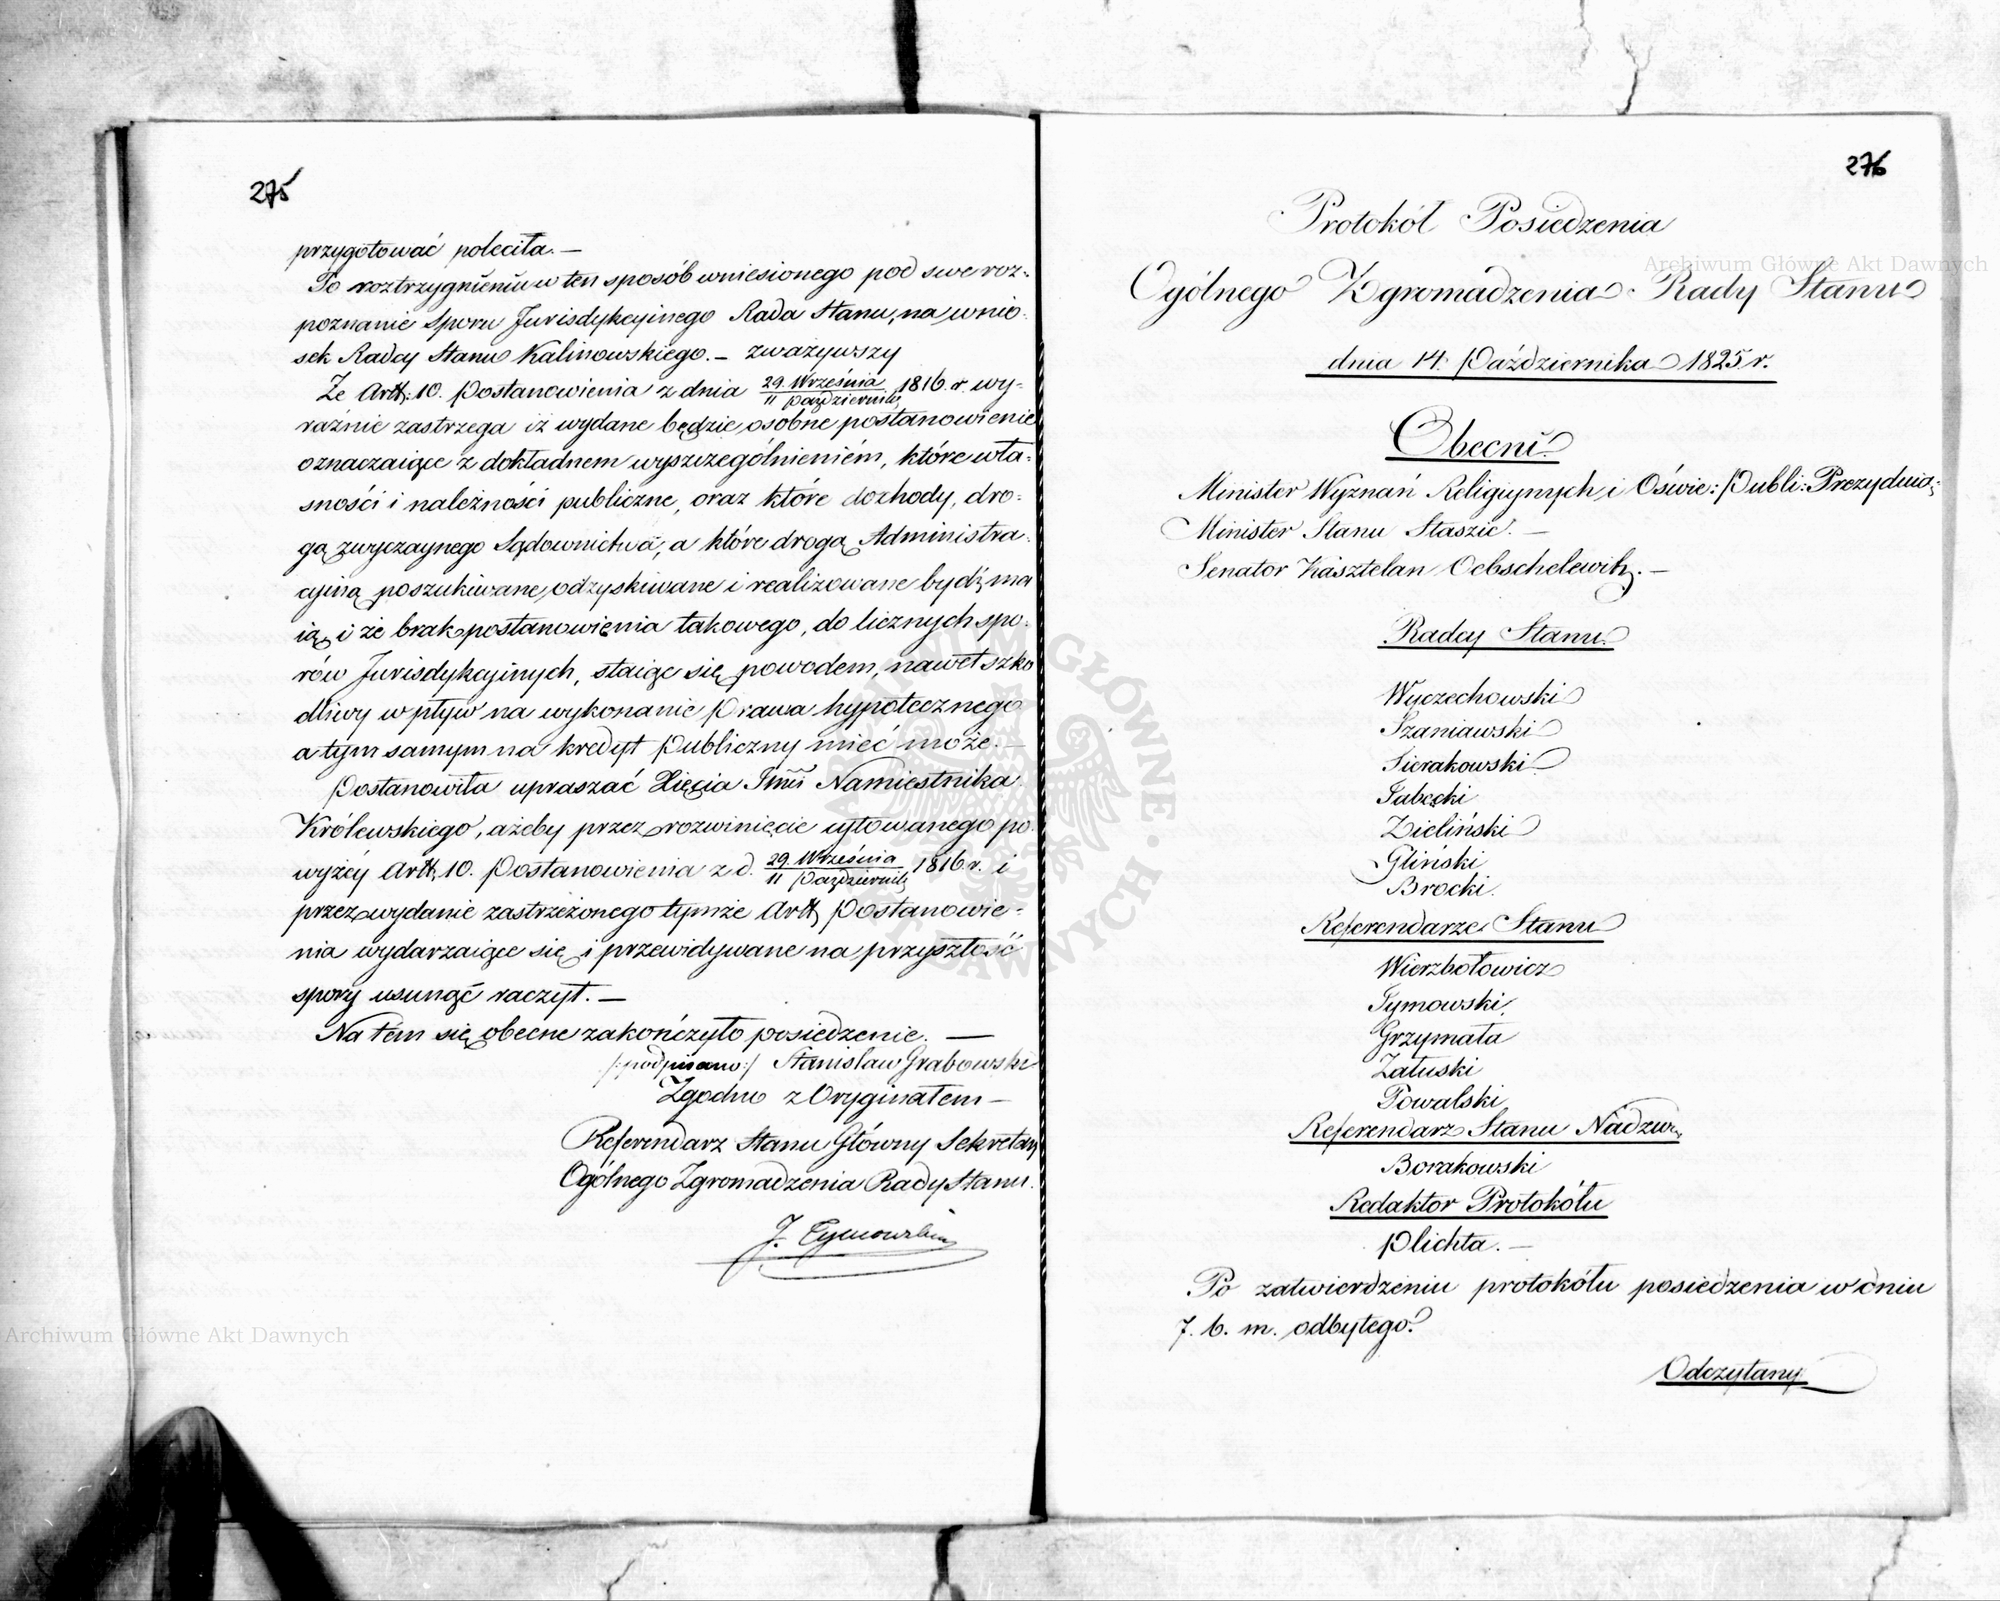 275
przygotować poleciła. —
Po roztrzygnieniu w ten sposób wniesionego pod swe roz-
poznanie Sporu Jurisdykcyjnego Rada Stanu, na wnio-
sek Radcy Stanu Kalinowskiego. — zważywszy
Że Artt: 10. Postanowienia z dnia 29. Września / 11 Październik 1816. r. wy-
raźnie zastrzega iż wydane będzie osobne postanowienie
oznaczaiące z dokładnem wyszczególnieniém, które wła-
sności i należności publiczne, oraz które dochody, dro-
gą zwyczaynego Sądownictwa, a które drogą Administra-
cyiną poszukiwane, odzyskiwane i realizowane bydź ma
ią, i że brak postanowienia takowego, do licznych spo-
rów Jurisdykcyinych, staiąc się powodem, nawet szko
dliwy wpływ na wykonanie Prawa hypotecznego
a tym samym na kredyt Publiczny mieć może. —
Postanowiła upraszać Xięcia Jmci Namiestnika
Królewskiego, ażeby przez rozwinięcie cytowanego po
wyżéy Artt. 10. Postanowienia z d. 29. Września / 11 Październik 1816. r. i
przez wydanie zastrzeżonego tymże Artt. Postanowie-
nia wydarzaiące się i przewidywane na przyszłość
spory usunąć raczył. —
Na tém się obecne zakończyło posiedzenie. —
/:podpisano:/ Stanisław Grabowski
Zgodno z Oryginałem —
Referendarz Stanu Główny Sekretarz
Ogólnego Zgromadzenia Rady Stanu.
J. Tymowski
276
Protokół Posiedzenia
Ogólnego Zgromadzenia Rady Stanu
dnia 14. Października 1825 r.
Obecni
Minister Wyznań Religiynych i Oświe: Publi: Prezyduią:
Minister Stanu Staszic. —
Senator Kasztelan Oebschelewitz. —
Radcy Stanu
Wyczechowski
Szaniawski
Sierakowski
Łabęcki
Zieliński
Gliński
Brocki.
Referendarze Stanu
Wierzbołowicz
Tymowski
Grzymała
Załuski
Powalski
Referendarz Stanu Nadzw.
Borakowski
Redaktor Protokółu
Plichta. —
Po zatwierdzeniu protokółu posiedzenia w dniu
7. b. m. odbytego.
Odczytany
Archiwum Główne Akt Dawnych
Archiwum Główne Akt Dawnych
ARCHIWUM GŁÓWNE AKT DAWNYCH